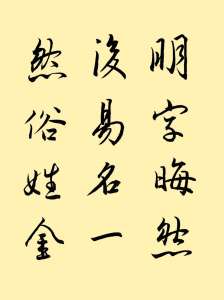 明字晦然
後易名一
然俗姓金